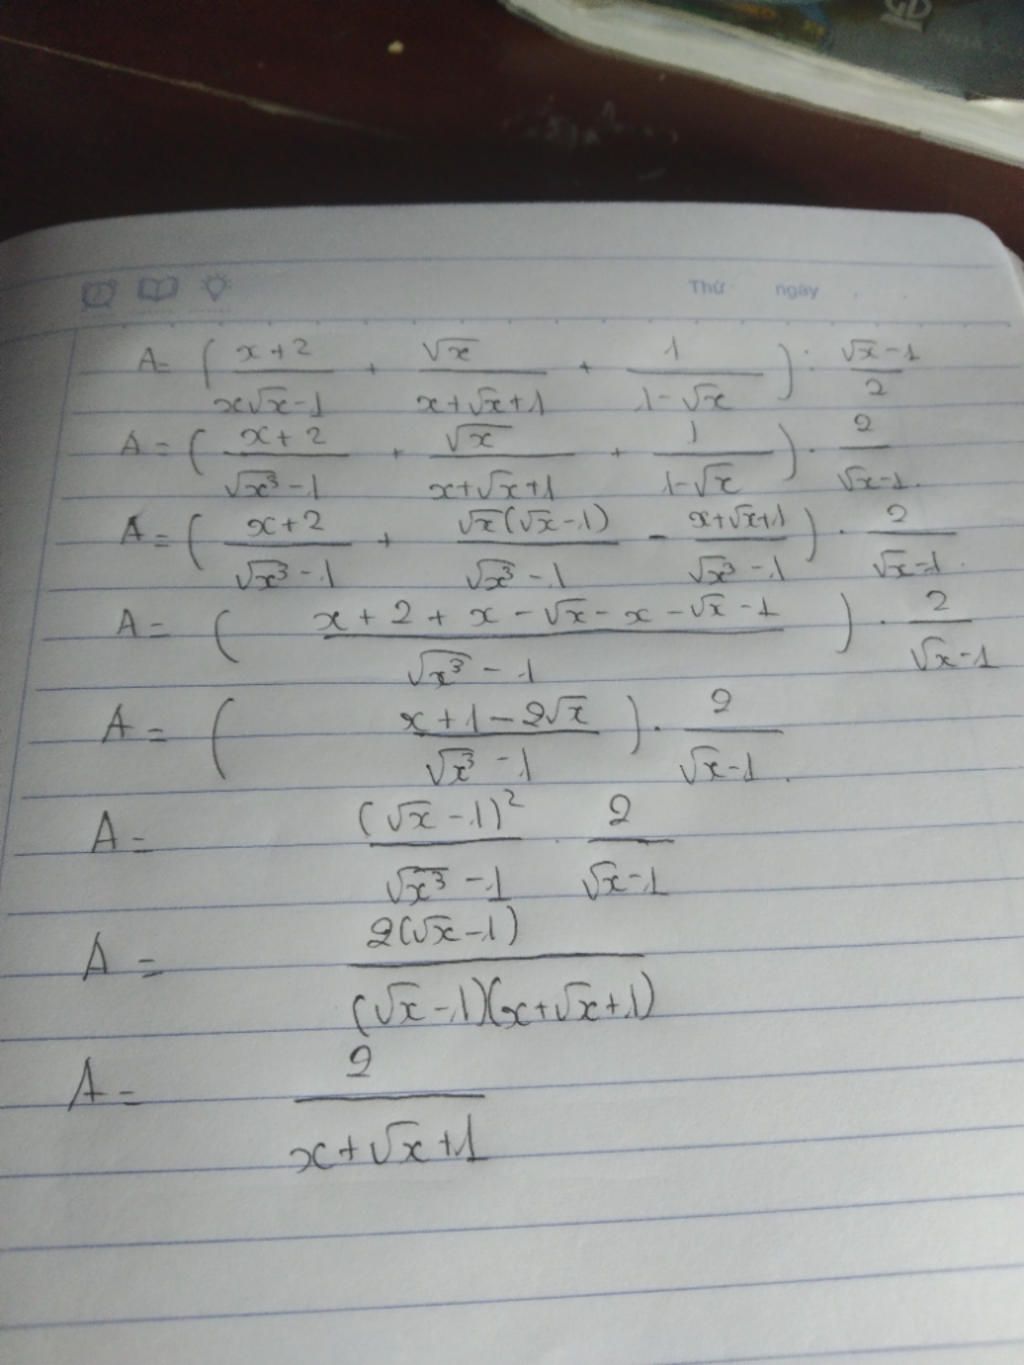 GD
Thứ ngày
A = ( (x+2)/(x√x-1) + √x/(x+√x+1) + 1/(1-√x) ) : (√x-1)/2
A = ( (x+2)/(√x³-1) + √x/(x+√x+1) + 1/(1-√x) ) . 2/(√x-1).
A = ( (x+2)/(√x³-1) + √x(√x-1)/(√x³-1) - (x+√x+1)/(√x³-1) ) . 2/(√x-1).
A = ( (x+2+x-√x-x-√x-1)/(√x³-1) ) . 2/(√x-1)
A = ( (x+1-2√x)/(√x³-1) ) . 2/(√x-1).
A = (√x-1)²/(√x³-1) . 2/(√x-1)
A = 2(√x-1)/((√x-1)(x+√x+1))
A = 2/(x+√x+1)